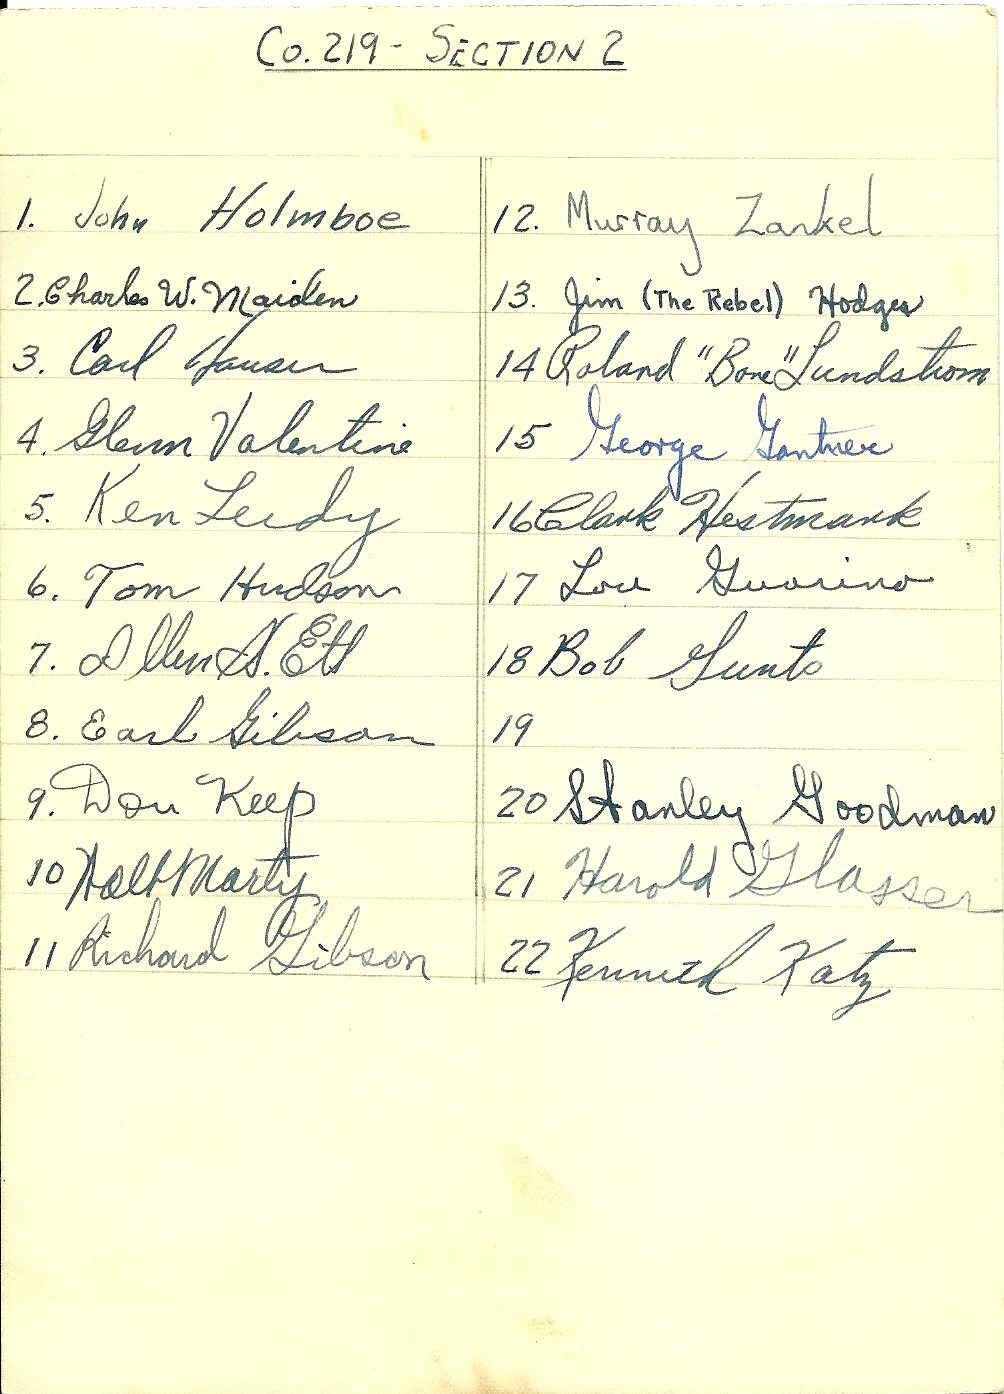 Co. 219 - SECTION 2
1. John Holmboe
2. Charles W. Maiden
3. Carl Hauser
4. Glenn Valentine
5. Ken Leidy
6. Tom Hudson
7. Allen
8. Earl Gibson
9. Don Keep
10 Walt Marty
11 Richard Gibson
12. Murray Zankel
13. Jim (The Rebel) Hodges
14 Roland "Bone" Lundstrom
15 George Gantner
16 Clark Hestmark
17 Lou Guarino
18 Bob
19
20 Stanley Goodman
21 Harold Glasser
22 Kenneth Katz